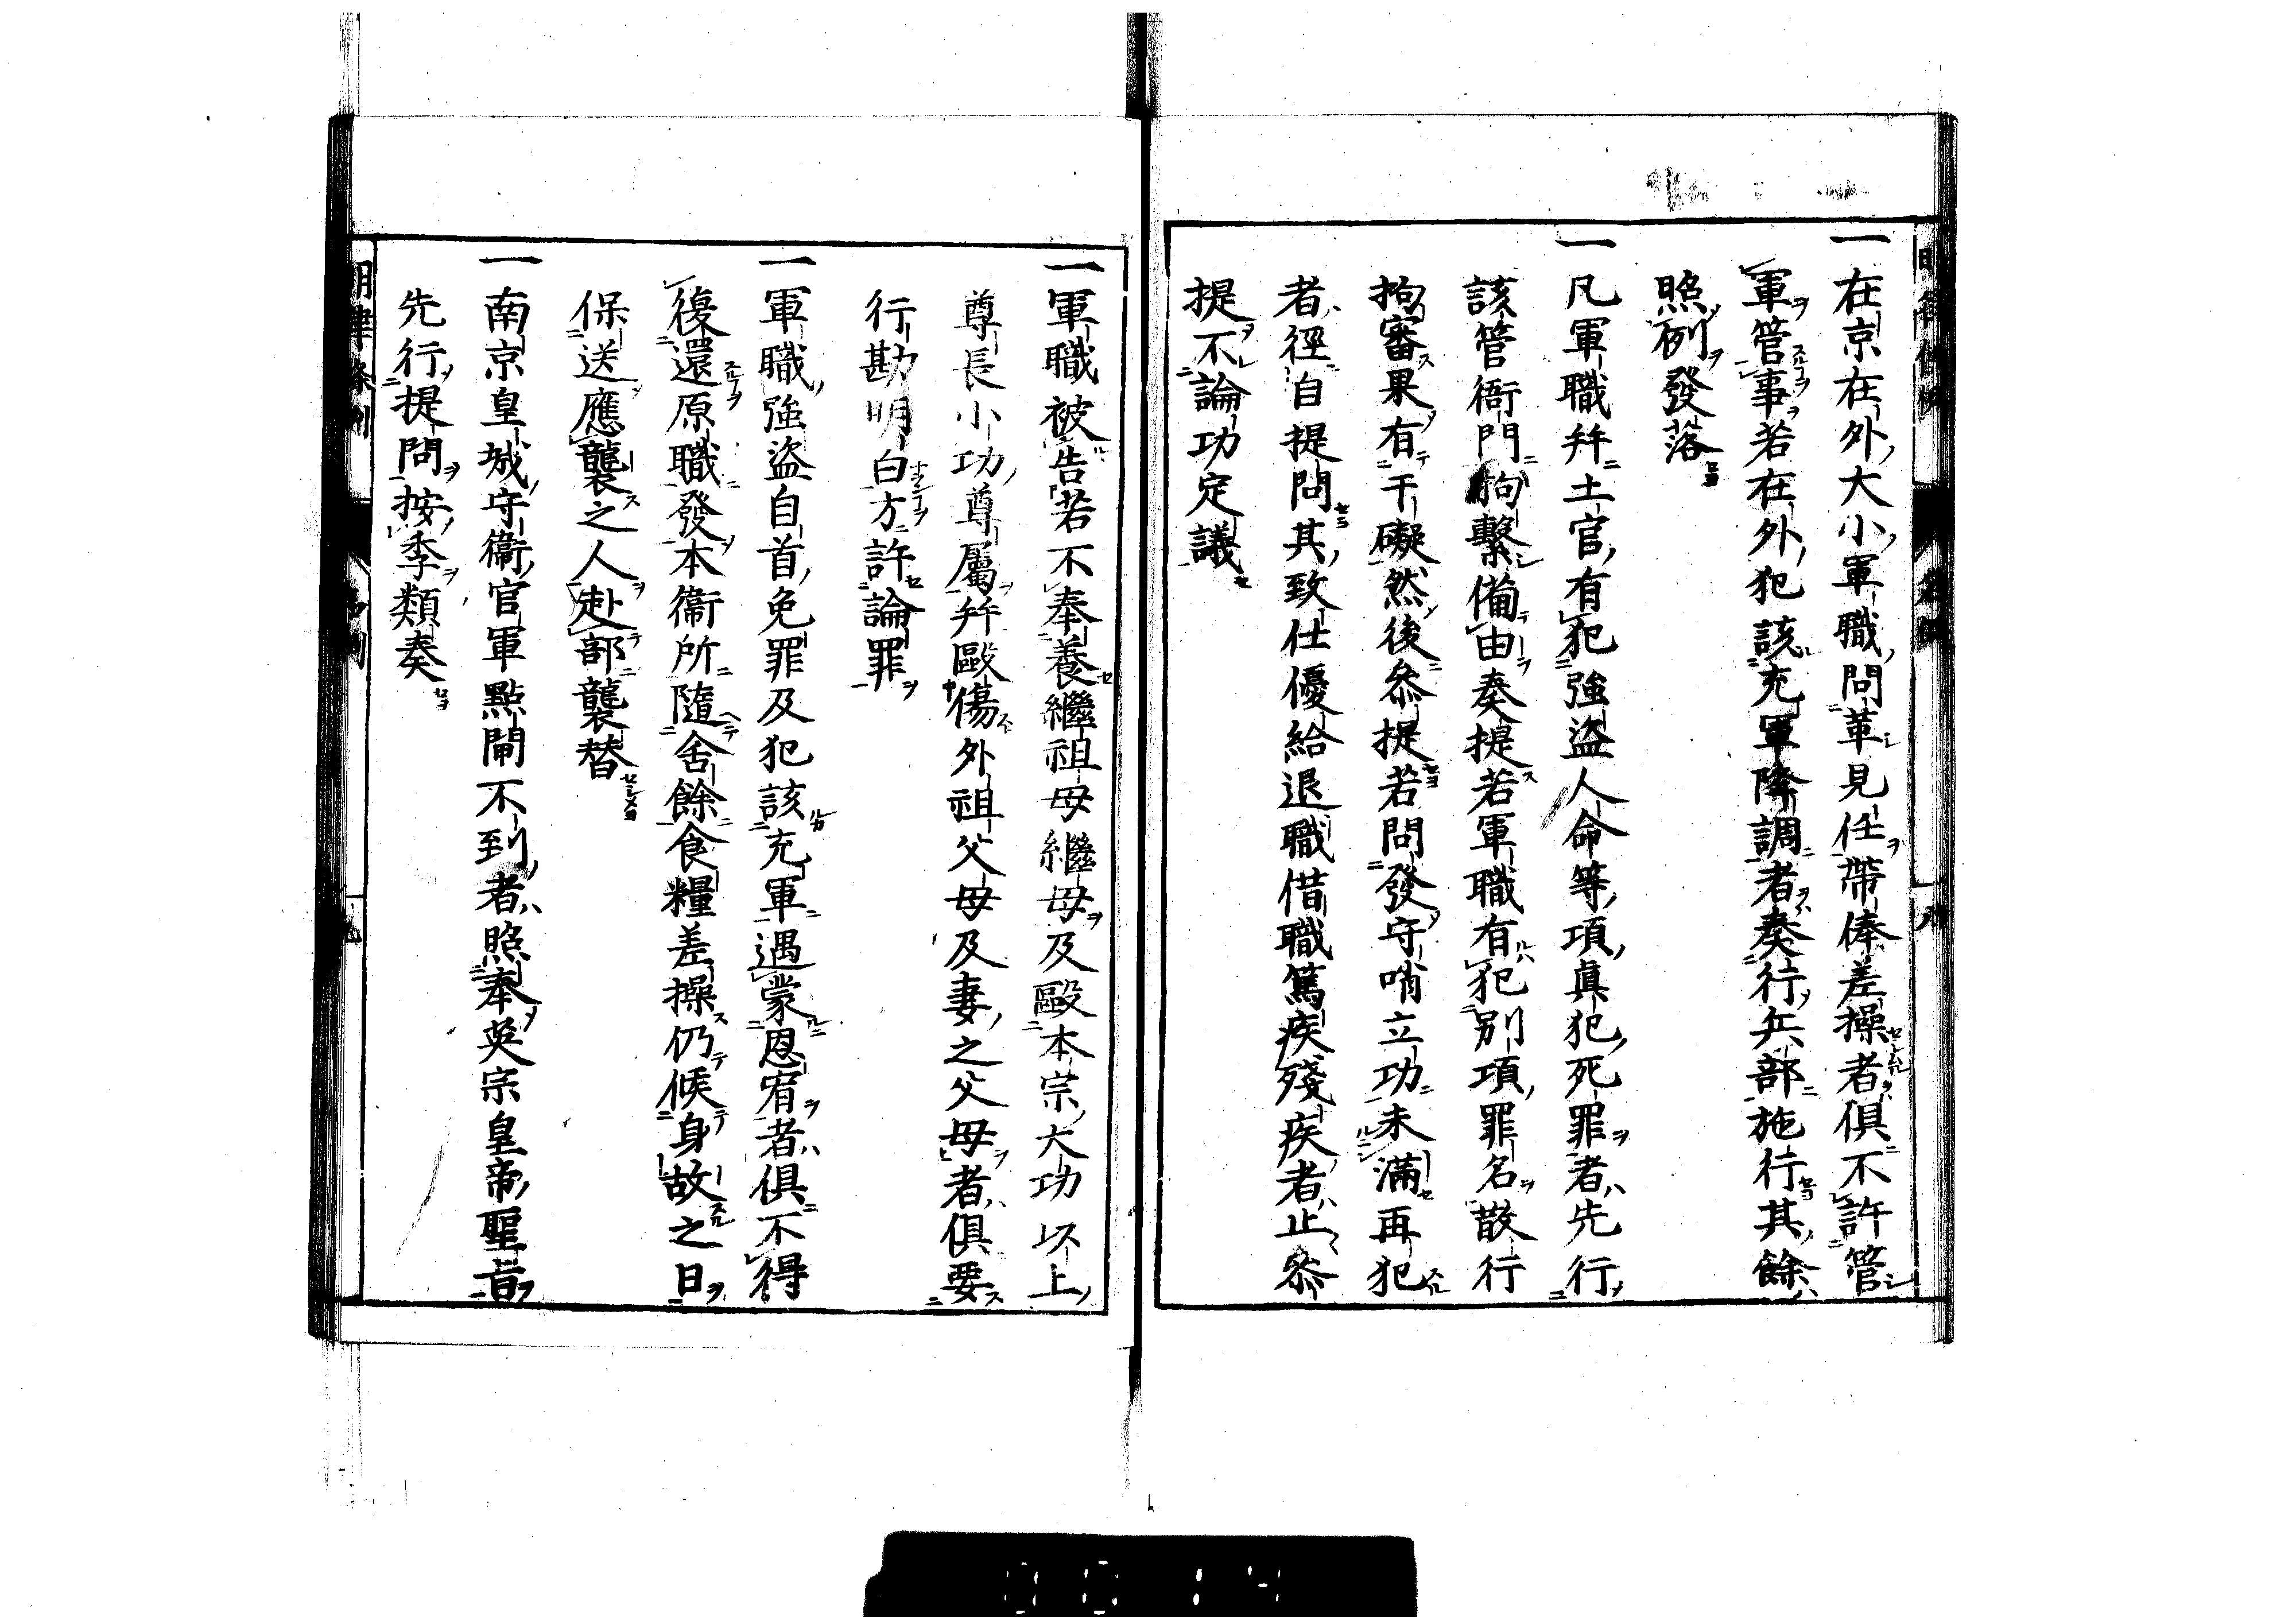 一在京在外大小軍職問革見任帶俸差操者俱不許管
軍管事若在外犯該充軍降調者奏行兵部施行其餘
照例發落
一凡軍職幷土官有犯強盜人命等項眞犯死罪者先行
該管衙門拘繫備由奏提若軍職有犯別項罪名散行
拘審果有干礙然後叅提若問發守哨立功未滿再犯
者徑自提問其致仕優給退職借職篤疾殘疾者止叅
提不論功定議
一軍職被告若不奉養繼祖母繼母及毆本宗大功以上
尊長小功尊屬幷毆傷外祖父母及妻之父母者俱要
行勘明白方許論罪
一軍職強盜自首免罪及犯該充軍遇蒙恩宥者俱不得
復還原職發本衞所隨舍餘食糧差操仍候身故之日
保送應襲之人赴部襲替
一南京皇城守衞官軍點閘不到者照奉英宗皇帝聖旨
先行提問按季類奏